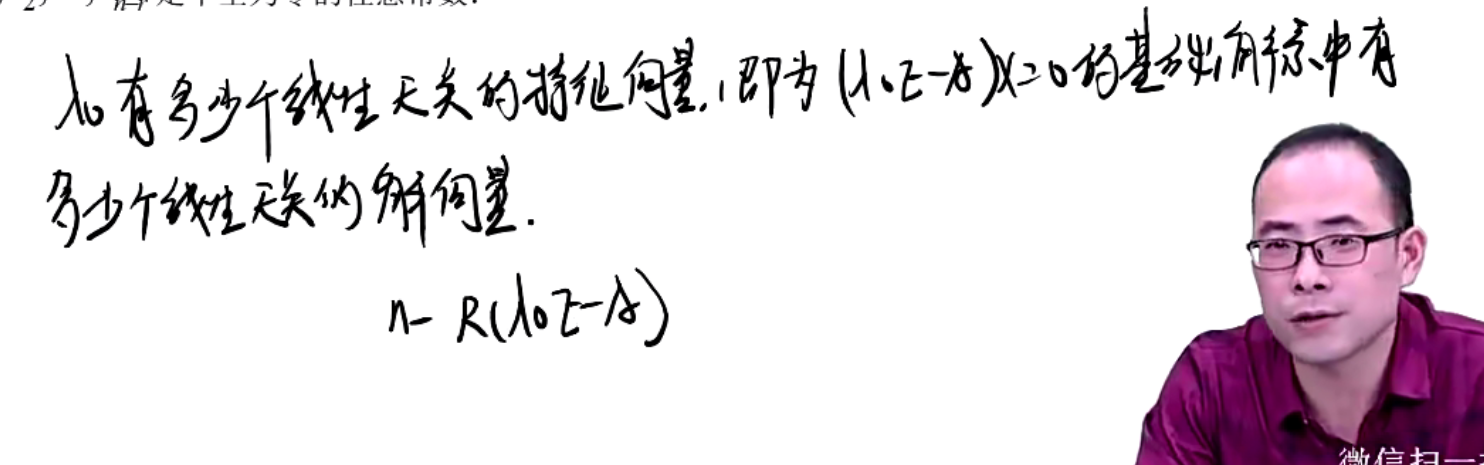 λ₀有多少个线性无关的特征向量,即为(λ₀E-A)X=0的基础解系中有
多少个线性无关的解向量.
n-R(λ₀E-A)
微信扫一